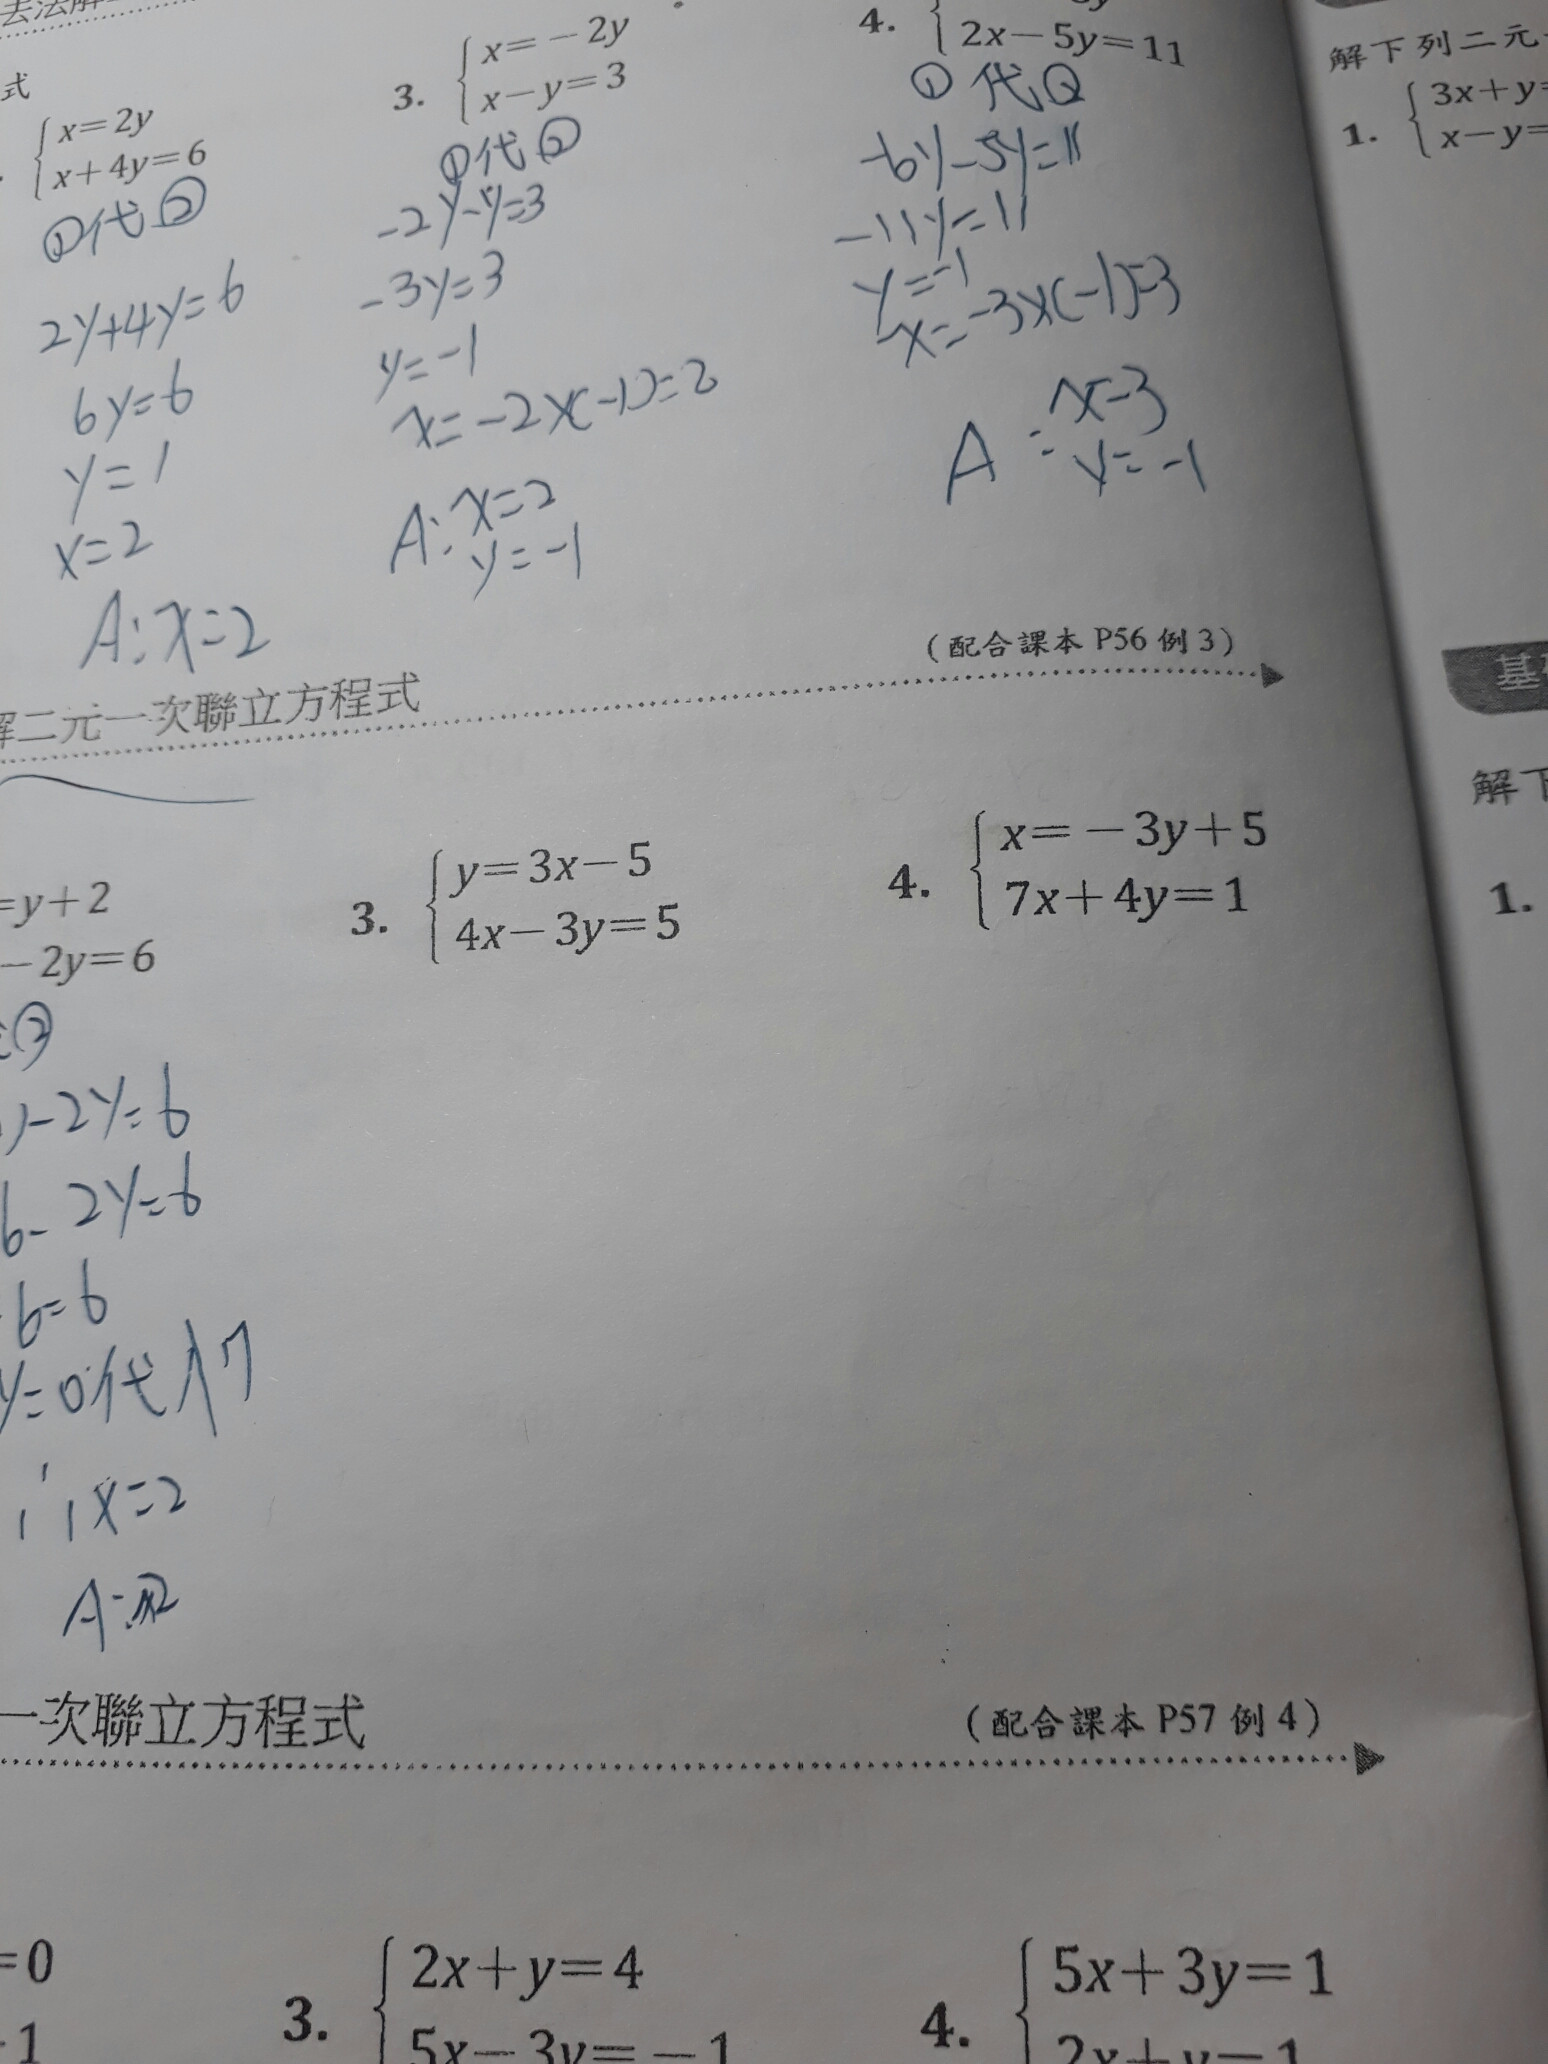 式
x=2y
x+4y=6
①代②
2y+4y=6
6y=6
y=1
x=2
A:x=2
3.
x=-2y
x-y=3
①代②
-2y-y=3
-3y=3
y=-1
x=-2×(-1)=2
A:x=2
y=-1
4.
2x-5y=11
①代②
-6y-5y=11
-11y=11
y=-1
x=-3×(-1)=3
A:x=3
y=-1
(配合課本 P56 例 3)
解二元一次聯立方程式
=y+2
-2y=6
②
)-2y=6
6-2y=6
6=6
y=0代入
x=2
3.
y=3x-5
4x-3y=5
4.
x=-3y+5
7x+4y=1
一次聯立方程式
(配合課本 P57 例 4)
=0
1
3.
2x+y=4
5x-3y=-1
4.
5x+3y=1
2x+y=1
解下列二元
1.
3x+y=
x-y=
解下
1.